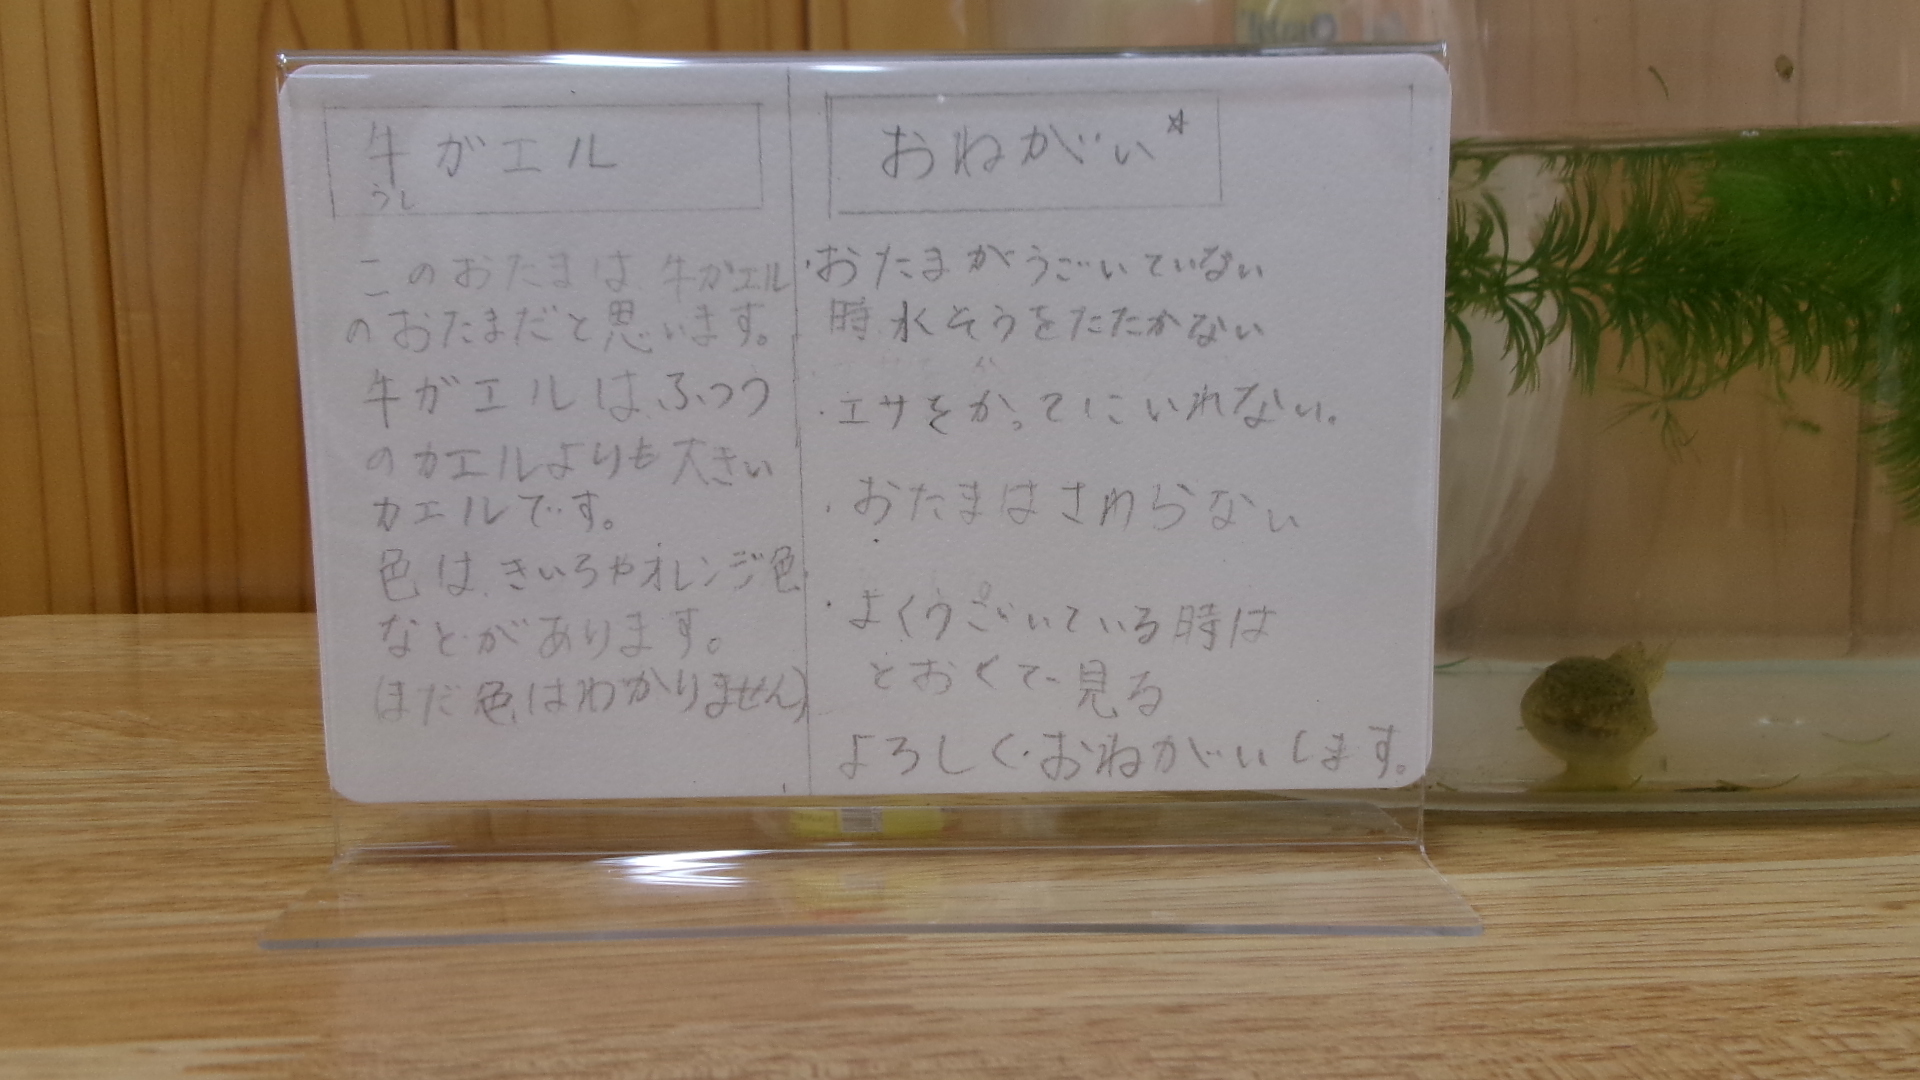 牛ガエル
うし
このおたまは牛ガエル
のおたまだと思います。
牛ガエルはふつう
のカエルよりも大きい
カエルです。
色は、きいろやオレンジ色
などがあります。
(まだ色はわかりません)
おねがい☆
・おたまがうごいていない
時水そうをたたかない
・エサをかってにいれない。
・おたまはさわらない
・よくうごいている時は
とおくで見る
よろしくおねがいします。